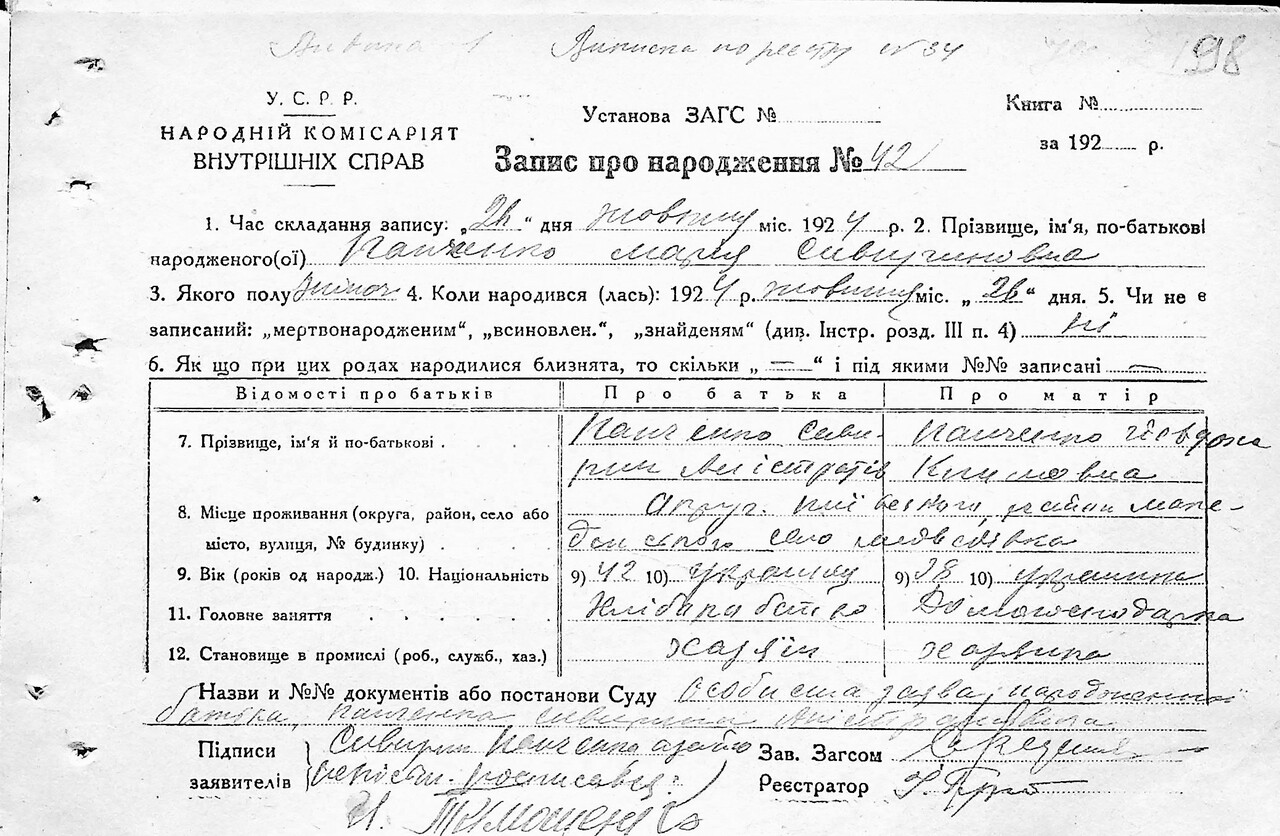 Виписка по реєстру №34
198
У. С. Р. Р.
НАРОДНІЙ КОМІСАРІЯТ
ВНУТРІШНІХ СПРАВ
Установа ЗАГС №
Книга №
за 192 р.
Запис про народження № 42
1. Час складання запису: „26“ дня жовтня міс. 1924 р. 2. Прізвище, ім'я, по-батькові
народженого(ої) Панченко Мария Сивириновна
3. Якого полу жіноч 4. Коли народився (лась): 1924 р. жовтня міс. „26“ дня. 5. Чи не є
записаний: „мертвонародженим“, „всиновлен.“, „знайденям“ (див. Інстр. розд. III п. 4) ні
6. Як що при цих родах народилися близнята, то скільки „ — “ і під якими №№ записані —
Відомості про батьків Про батька Про матір
7. Прізвище, ім'я й по-батькові . Панченко Сиви- Панченко
рин Климовна
8. Місце проживання (округа, район, село або Округ. район Маке-
місто, вулиця, № будинку) . донского село
9. Вік (років од народж.) 10. Національність 9) 42 10) українец 9) 38 10) украинка
11. Головне заняття . . . . . . Хлібаробство Домогосподарка
12. Становище в промислі (роб., служб., хаз.) хазяїн хазяика
Назви и №№ документів або постанови Суду Особиста заява
батька, Панченка Сивирина
Підписи Сивирин Панченко Зав. Загсом
заявителів росписався: Реєстратор